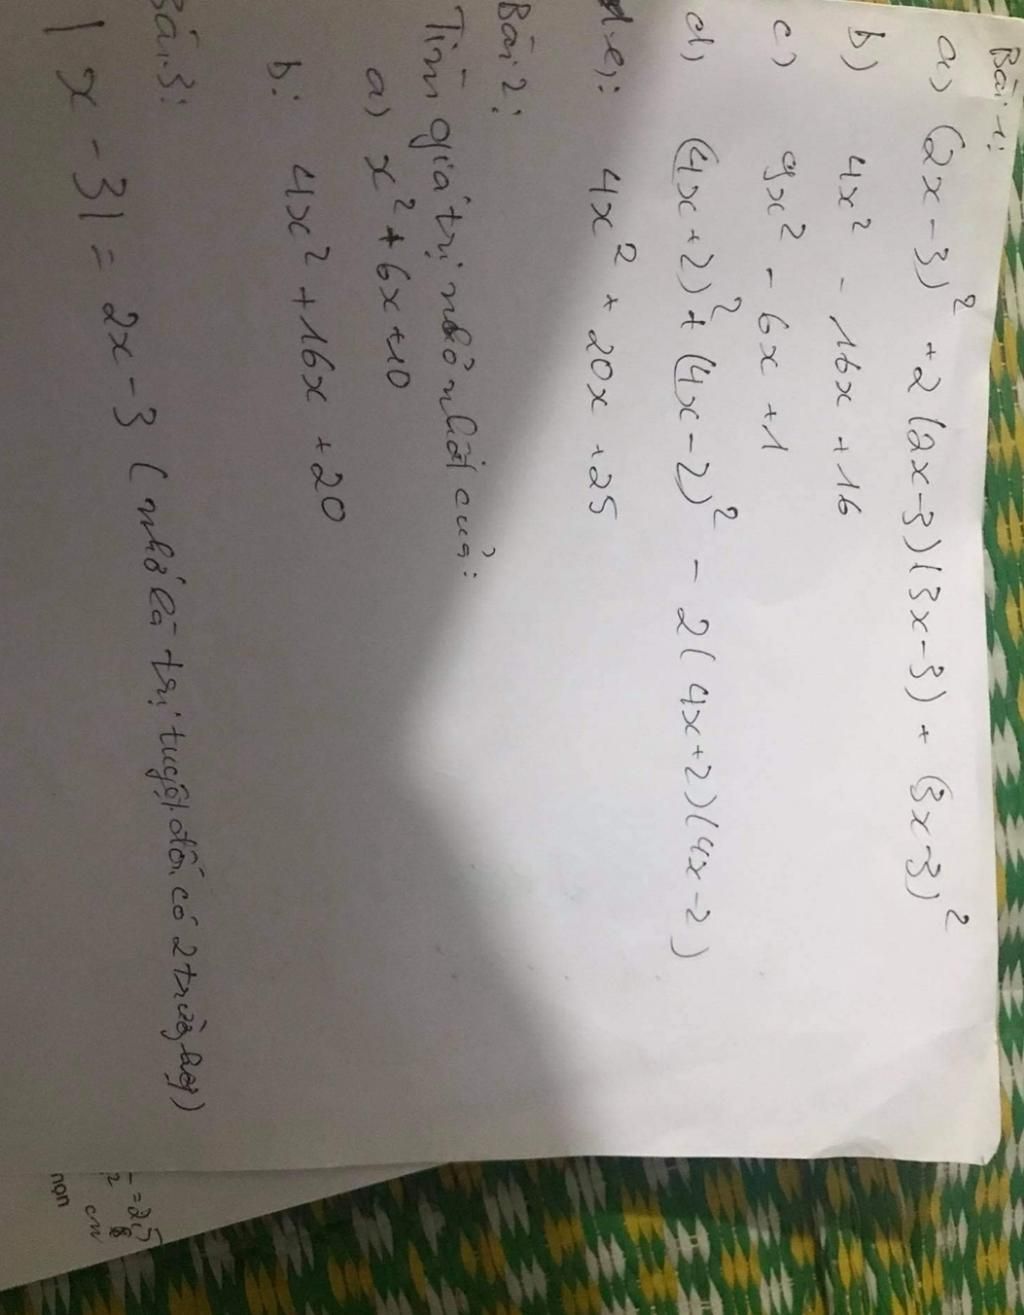 Bài 1:
a) (2x - 3)² + 2(2x - 3)(3x - 3) + (3x - 3)²
b) 4x² - 16x + 16
c) 9x² - 6x + 1
d) (4x + 2)² + (4x - 2)² - 2(4x + 2)(4x - 2)
e): 4x² + 20x + 25
Bài 2:
Tìm giá trị nhỏ nhất của:
a) x² + 6x + 10
b: 4x² + 16x + 20
Bài 3:
|x - 3| = 2x - 3 (nhớ là trị tuyệt đối có 2 trường hợp)